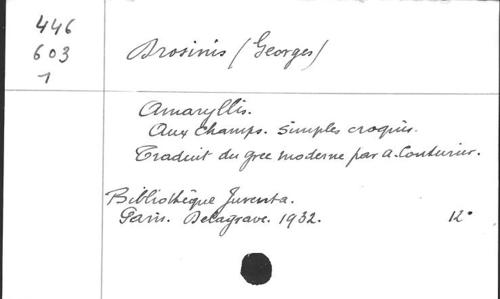 446
603
1
Brosinis (Georges)
Amaryllis.
Aux champs. Simples croquis.
Traduit du grec moderne par A. Couturier.
Bibliothèque Juventa.
Paris. Delagrave. 1932. 12°